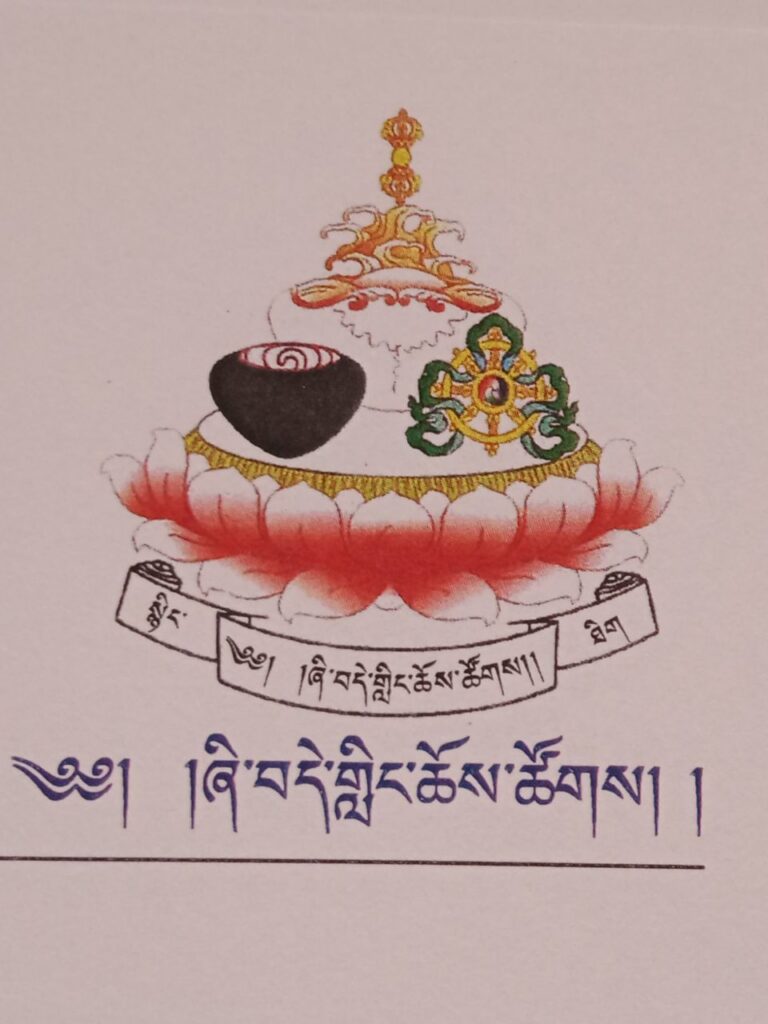 སྙིང་
ཐིག
༄༅། །ཞི་བདེ་གླིང་ཆོས་ཚོགས།།
༄༅། །ཞི་བདེ་གླིང་ཆོས་ཚོགས། །